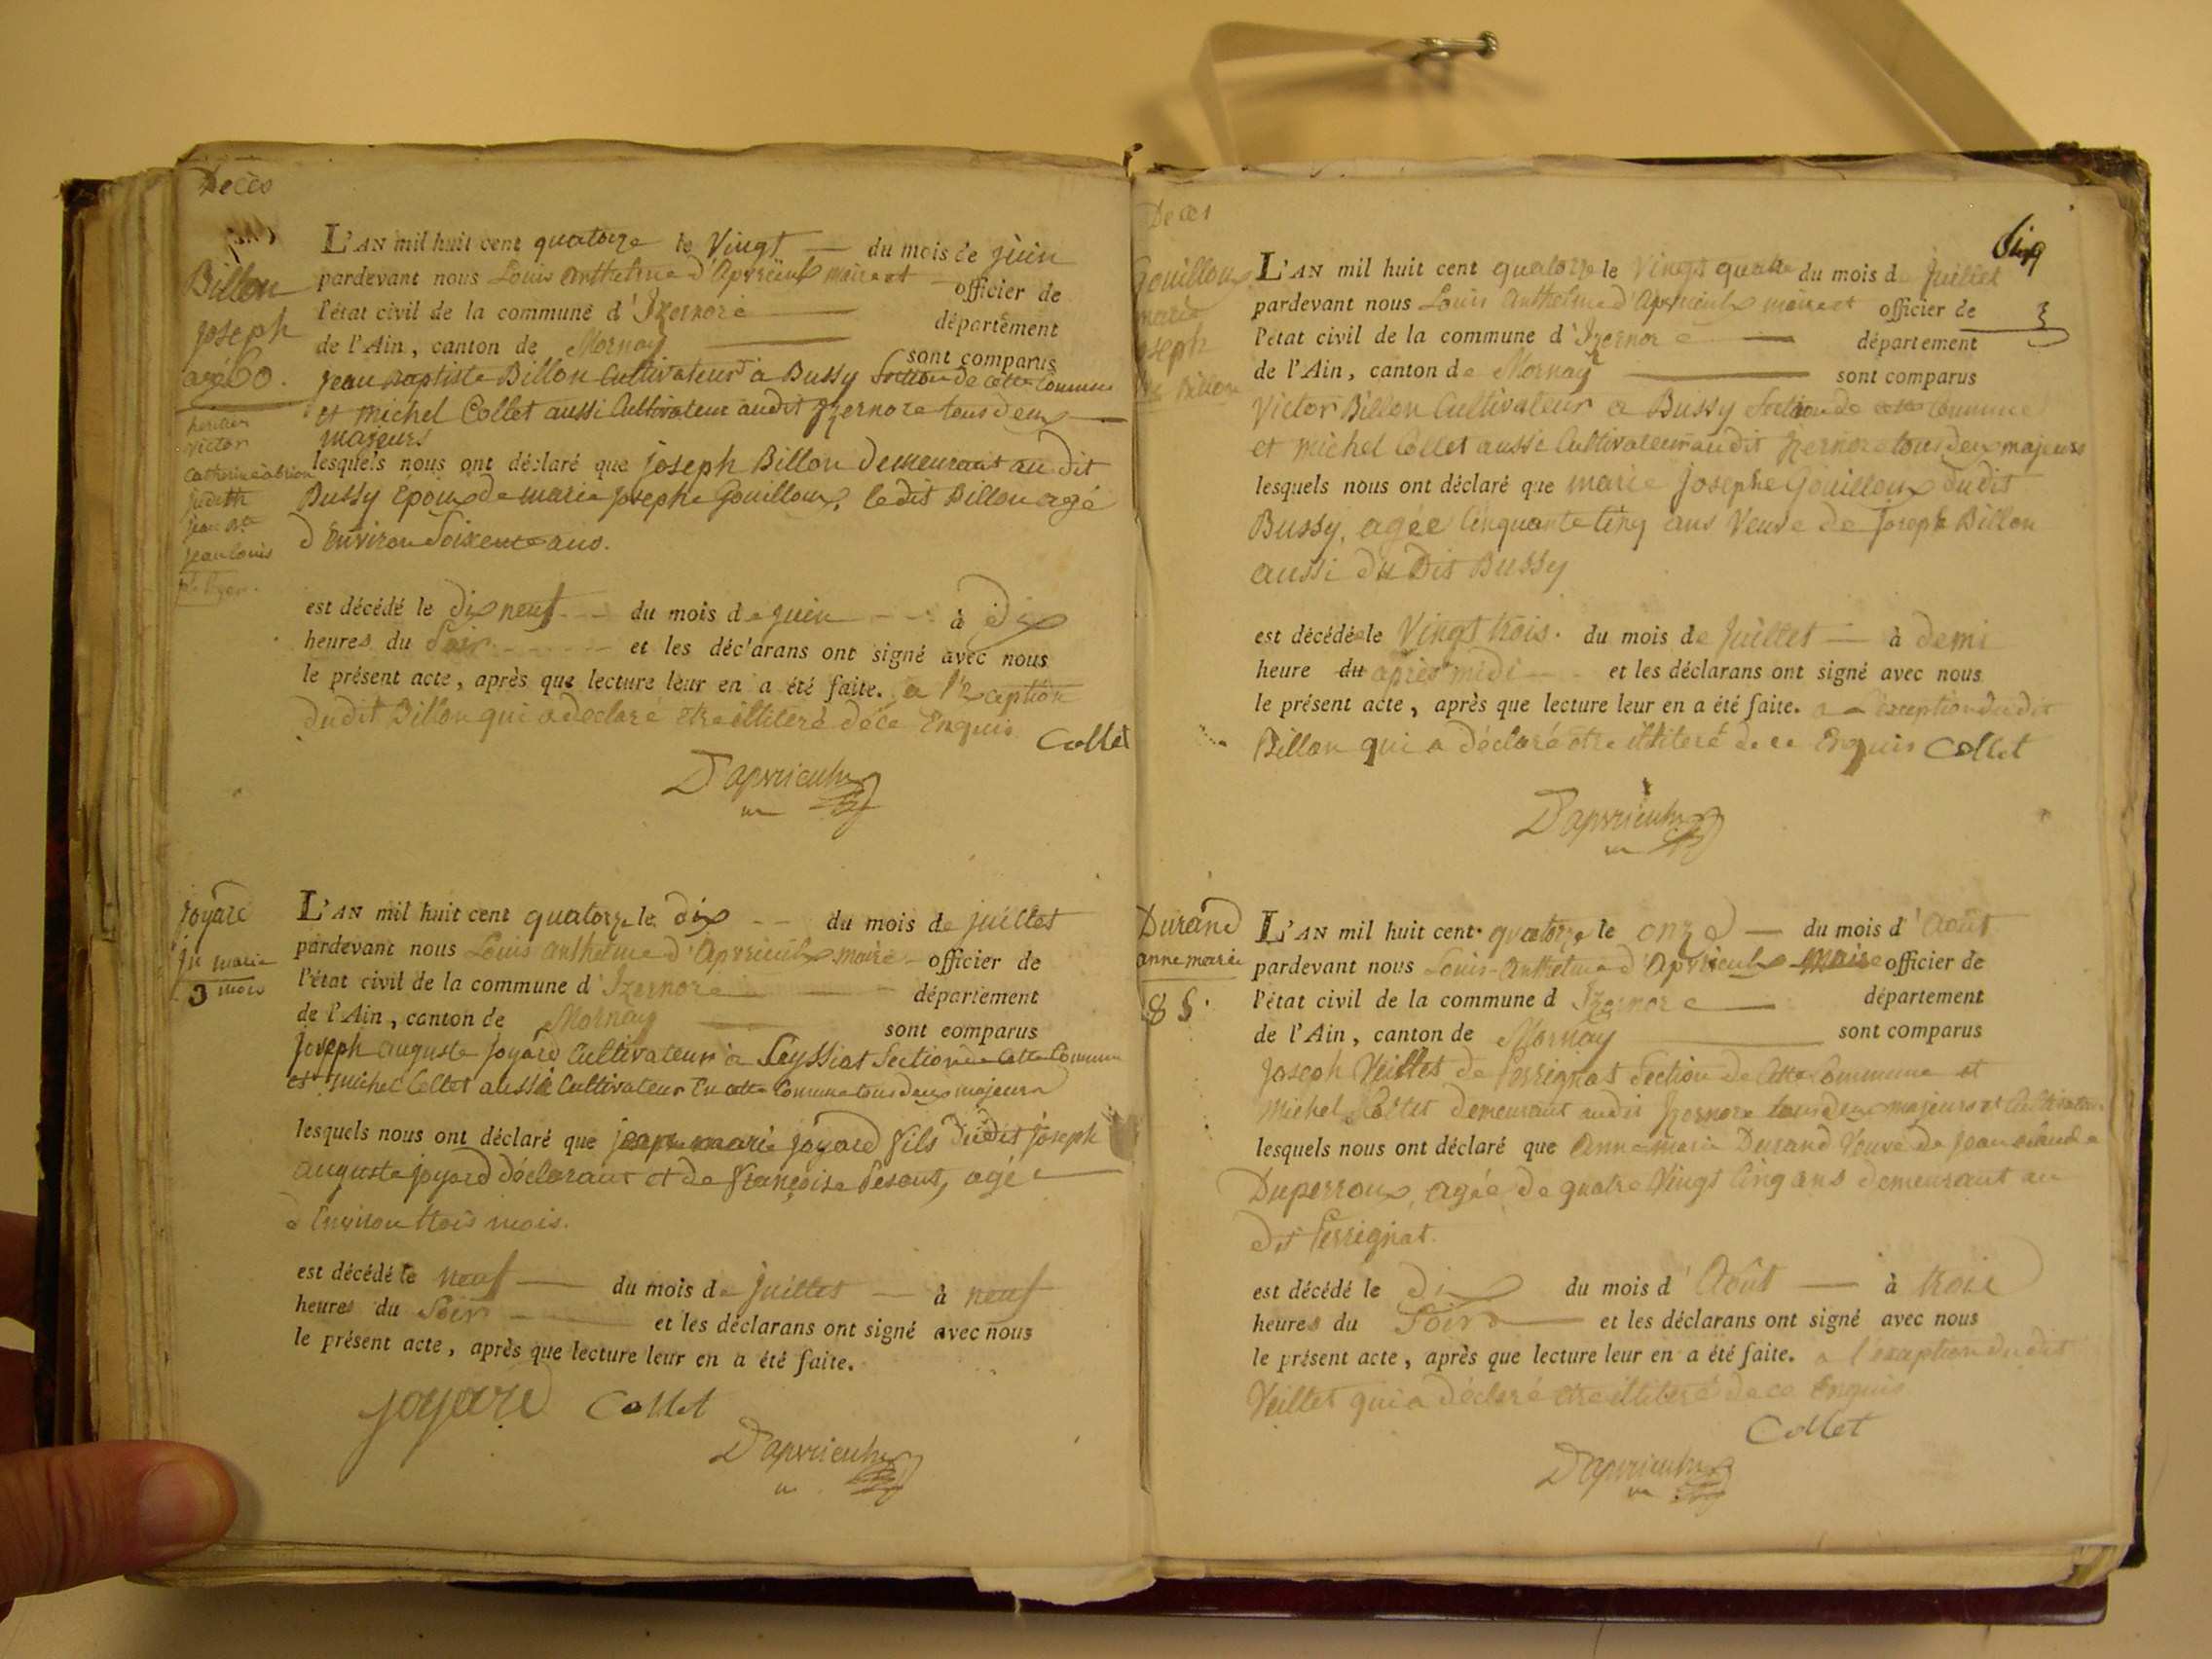 Decès
Billon
joseph
agé 60.
heritiers
victor
Catherine
judith
jean Bte
jean louis
L'AN mil huit cent quatorze le Vingt du mois de juin
pardevant nous Louis Anthelme d'Apvrieulx maire et officier de
l'état civil de la commune d'Izernore département
de l'Ain, canton de Mornay sont comparus
jean baptiste Billon Cultivateur à Bussy Section de cette Commune
et michel Collet aussi Cultivateur audit Izernore tous deux
majeurs
lesquels nous ont déclaré que joseph Billon demeurant au dit
Bussy Epoux de marie josephe Gouilloux, ledit Billon agé
d'Environ Soixente ans.
est décédé le dix neuf du mois de juin à dix
heures du Soir et les déclarans ont signé avec nous
le présent acte, après que lecture leur en a été faite. a l'exception
dudit Billon qui a declaré etre illiteré de ce Enquis Collet
D'apvrieulx
joyard
jn marie
3 mois
L'AN mil huit cent quatorze le dix du mois de juillet
pardevant nous Louis anthelme d'Apvrieulx maire officier de
l'état civil de la commune d'Izernore département
de l'Ain, canton de Mornay sont comparus
joseph auguste joyard Cultivateur à Leyssiat Section de cette Commune
et michel Collet aussi Cultivateur En cette Commune tous deux majeurs
lesquels nous ont déclaré que jean marie joyard fils dudit joseph
auguste joyard déclarant et de françoise agé
d'Environ trois mois.
est décédé le neuf du mois de juillet à neuf
heures du Soir et les déclarans ont signé avec nous
le présent acte, après que lecture leur en a été faite.
joyard Collet
D'apvrieulx
Deces
Cinq
Gouilloux
marie
joseph
Billon
L'AN mil huit cent quatorze le Vingt quatre du mois de juillet
pardevant nous Louis Anthelme d'Apvrieulx maire et officier de
l'état civil de la commune d'Izernore département
de l'Ain, canton de Mornay sont comparus
Victor Billon Cultivateur a Bussy Section de cette Commune
et michel Collet aussi Cultivateur audit Izernore tous deux majeurs
lesquels nous ont déclaré que marie josephe Gouilloux dudit
Bussy, agée Cinquante Cinq ans Veuve de Joseph Billon
aussi du dit Bussy
est décédée le Vingt trois. du mois de juillet à demi
heure du après midi et les déclarans ont signé avec nous
le présent acte, après que lecture leur en a été faite. a l'exception dudit
Billon qui a déclaré etre illiteré de ce Enquis Collet
D'apvrieulx
Durand
anne marie
85.
L'AN mil huit cent quatorze le onze du mois d'Août
pardevant nous Louis-Anthelme d'Apvrieulx Maire officier de
l'état civil de la commune d Izernore département
de l'Ain, canton de Mornay sont comparus
Joseph Veillet de Perrignat Section de Cette Commune et
Michel Collet demeurant audit Izernore tous deux majeurs et Cultivateurs
lesquels nous ont déclaré que Anne marie Durand Veuve de Jean claude
Duperroux, agée de quatre Vingt Cinq ans demeurant au
dit Perrignat.
est décédé le Dix du mois d'Août à trois
heures du Soir et les déclarans ont signé avec nous
le présent acte, après que lecture leur en a été faite. a l'exception du dit
Veillet qui a déclaré etre illiteré de ce Enquis
Collet
D'apvrieulx